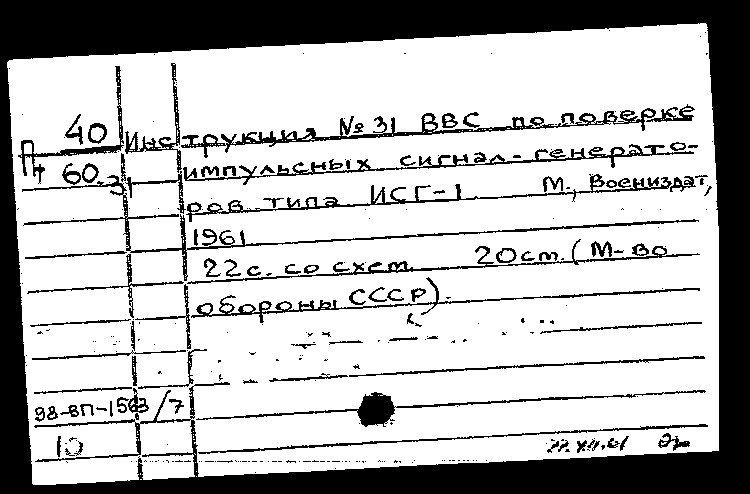 40 Инструкция № 31 ВВС по поверке
П4 60.31 импульсных сигнал-генерато-
ров типа ИСГ-1 М., Воениздат,
1961
22 с. со схем. 20 см. (М-во
обороны СССР).
98-ВП-1563/7
10 22.XII.61